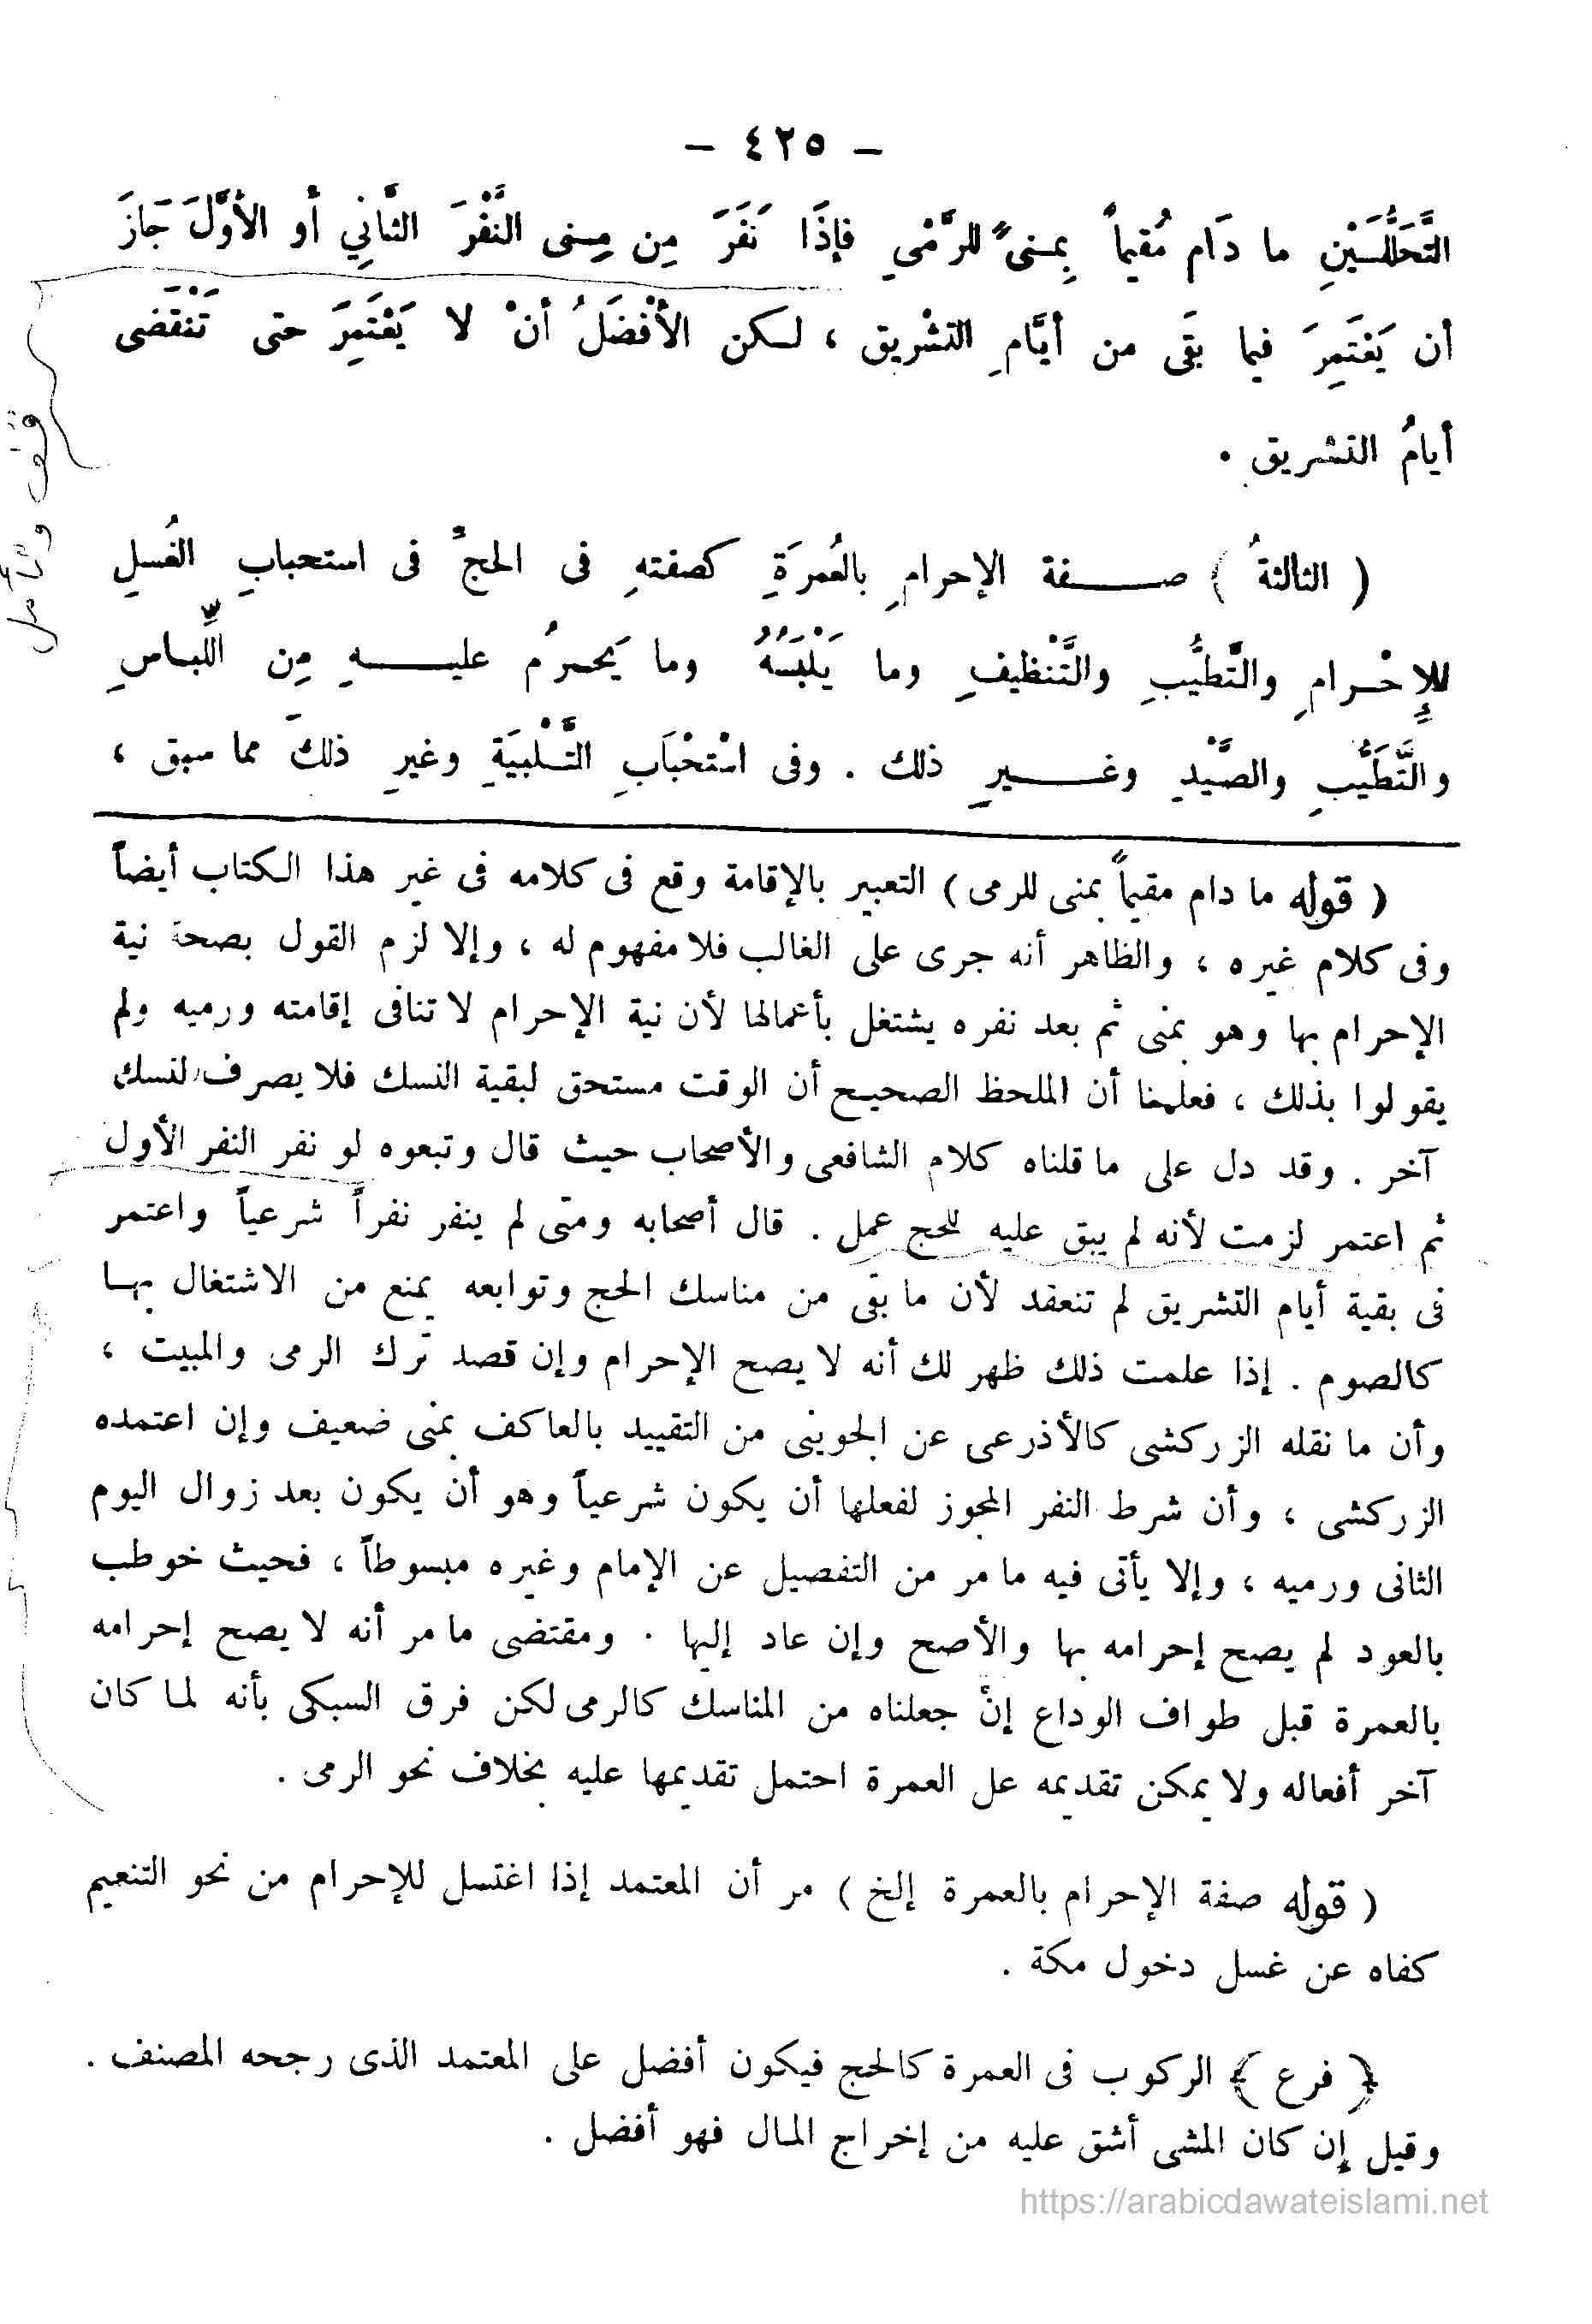 — ٤٢٥ —
التَّحَلُّلَيْنِ ما دَام مُقيماً بِمنىً للرَّمْىِ فإذَا نَفَرَ مِن مِنى النَّفْرَ الثَّانِي أو الأوَّلَ جَازَ
أن يَعْتَمِرَ فيما بَقَى من أيَّامِ التشْريق ، لكن الأفْضَلُ أنْ لا يَعْتَمِرَ حتى تَنْقَضى
أيامُ التشريق .
( الثالثةُ ) صفة الإحرامِ بالعُمرَةِ كصفتهِ فى الحجِّ فى استحبابِ الغُسلِ
للإِحْرامِ والتَّطيُّبِ والتَّنْظيفِ وما يَلْبَسُهُ وما يَحرمُ عليهِ مِن اللِّباسِ
والتَّطَيُّبِ والصَّيْدِ وغيرِ ذلك . وفى اسْتحْبَابِ التَّلْبيَةِ وغيرِ ذلكَ مما سبق ،
( قوله ما دام مقيماً بمنى للرمى ) التعبير بالإقامة وقع فى كلامه فى غير هذا الكتاب أيضاً
وفى كلام غيره ، والظاهر أنه جرى على الغالب فلا مفهوم له ، وإلا لزم القول بصحة نية
الإحرام بها وهو بمنى ثم بعد نفره يشتغل بأعمالها لأن نية الإحرام لا تنافى إقامته ورميه ولم
يقولوا بذلك ، فعلمنا أن الملحظ الصحيح أن الوقت مستحق لبقية النسك فلا يصرف لنسك
آخر . وقد دل على ما قلناه كلام الشافعى والأصحاب حيث قال وتبعوه لو نفر النفر الأول
ثم اعتمر لزمت لأنه لم يبق عليه للحج عمل . قال أصحابه ومتى لم ينفر نفراً شرعياً واعتمر
فى بقية أيام التشريق لم تنعقد لأن ما بقى من مناسك الحج وتوابعه يمنع من الاشتغال بها
كالصوم . إذا علمت ذلك ظهر لك أنه لا يصح الإحرام وإن قصد ترك الرمى والمبيت ،
وأن ما نقله الزركشى كالأذرعى عن الجوينى من التقييد بالعاكف بمنى ضعيف وإن اعتمده
الزركشى ، وأن شرط النفر المجوز لفعلها أن يكون شرعياً وهو أن يكون بعد زوال اليوم
الثانى ورميه ، وإلا يأتى فيه ما مر من التفصيل عن الإمام وغيره مبسوطاً ، فحيث خوطب
بالعود لم يصح إحرامه بها والأصح وإن عاد إليها . ومقتضى ما مر أنه لا يصح إحرامه
بالعمرة قبل طواف الوداع إنْ جعلناه من المناسك كالرمى لكن فرق السبكى بأنه لما كان
آخر أفعاله ولا يمكن تقديمه عل العمرة احتمل تقديمها عليه بخلاف نحو الرمى .
( قوله صفة الإحرام بالعمرة إلخ ) مر أن المعتمد إذا اغتسل للإحرام من نحو التنعيم
كفاه عن غسل دخول مكة .
﴿ فرع ﴾ الركوب فى العمرة كالحج فيكون أفضل على المعتمد الذى رجحه المصنف .
وقيل إن كان المشى أشق عليه من إخراج المال فهو أفضل .
قف وتأمل
https://arabicdawateislami.net